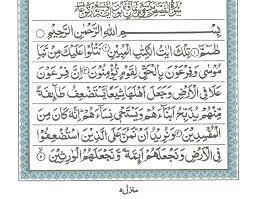 بِسْمِ اللّٰهِ الرَّحْمٰنِ الرَّحِيْمِ
طٰسٓمّٓ ۝ تِلْكَ اٰيٰتُ الْكِتٰبِ الْمُبِيْنِ ۝ نَتْلُوْا عَلَيْكَ مِنْ نَّبَاِ
مُوْسٰى وَفِرْعَوْنَ بِالْحَقِّ لِقَوْمٍ يُّؤْمِنُوْنَ ۝ اِنَّ فِرْعَوْنَ
عَلَا فِى الْاَرْضِ وَجَعَلَ اَهْلَهَا شِيَعًا يَّسْتَضْعِفُ طَآئِفَةً
مِّنْهُمْ يُذَبِّحُ اَبْنَآءَهُمْ وَيَسْتَحْيٖ نِسَآءَهُمْ ؕ اِنَّهٗ كَانَ مِنَ
الْمُفْسِدِيْنَ ۝ وَنُرِيْدُ اَنْ نَّمُنَّ عَلَى الَّذِيْنَ اسْتُضْعِفُوْا
فِى الْاَرْضِ وَنَجْعَلَهُمْ اَئِمَّةً وَّنَجْعَلَهُمُ الْوٰرِثِيْنَ ۝
منزل ٥